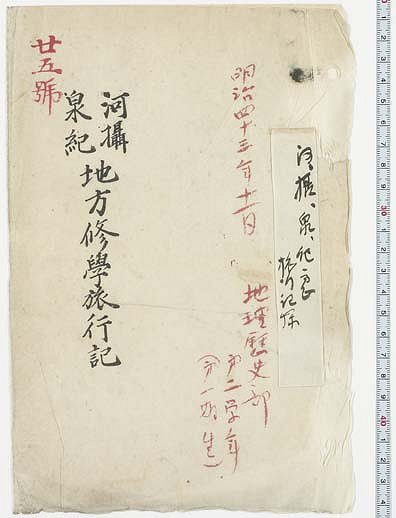 河、摂、泉、紀
旅行記録
明治四十三年十一月
地理歷史部
第二学年
(第一期生)
河攝
泉紀
地方修學旅行記
廿五號